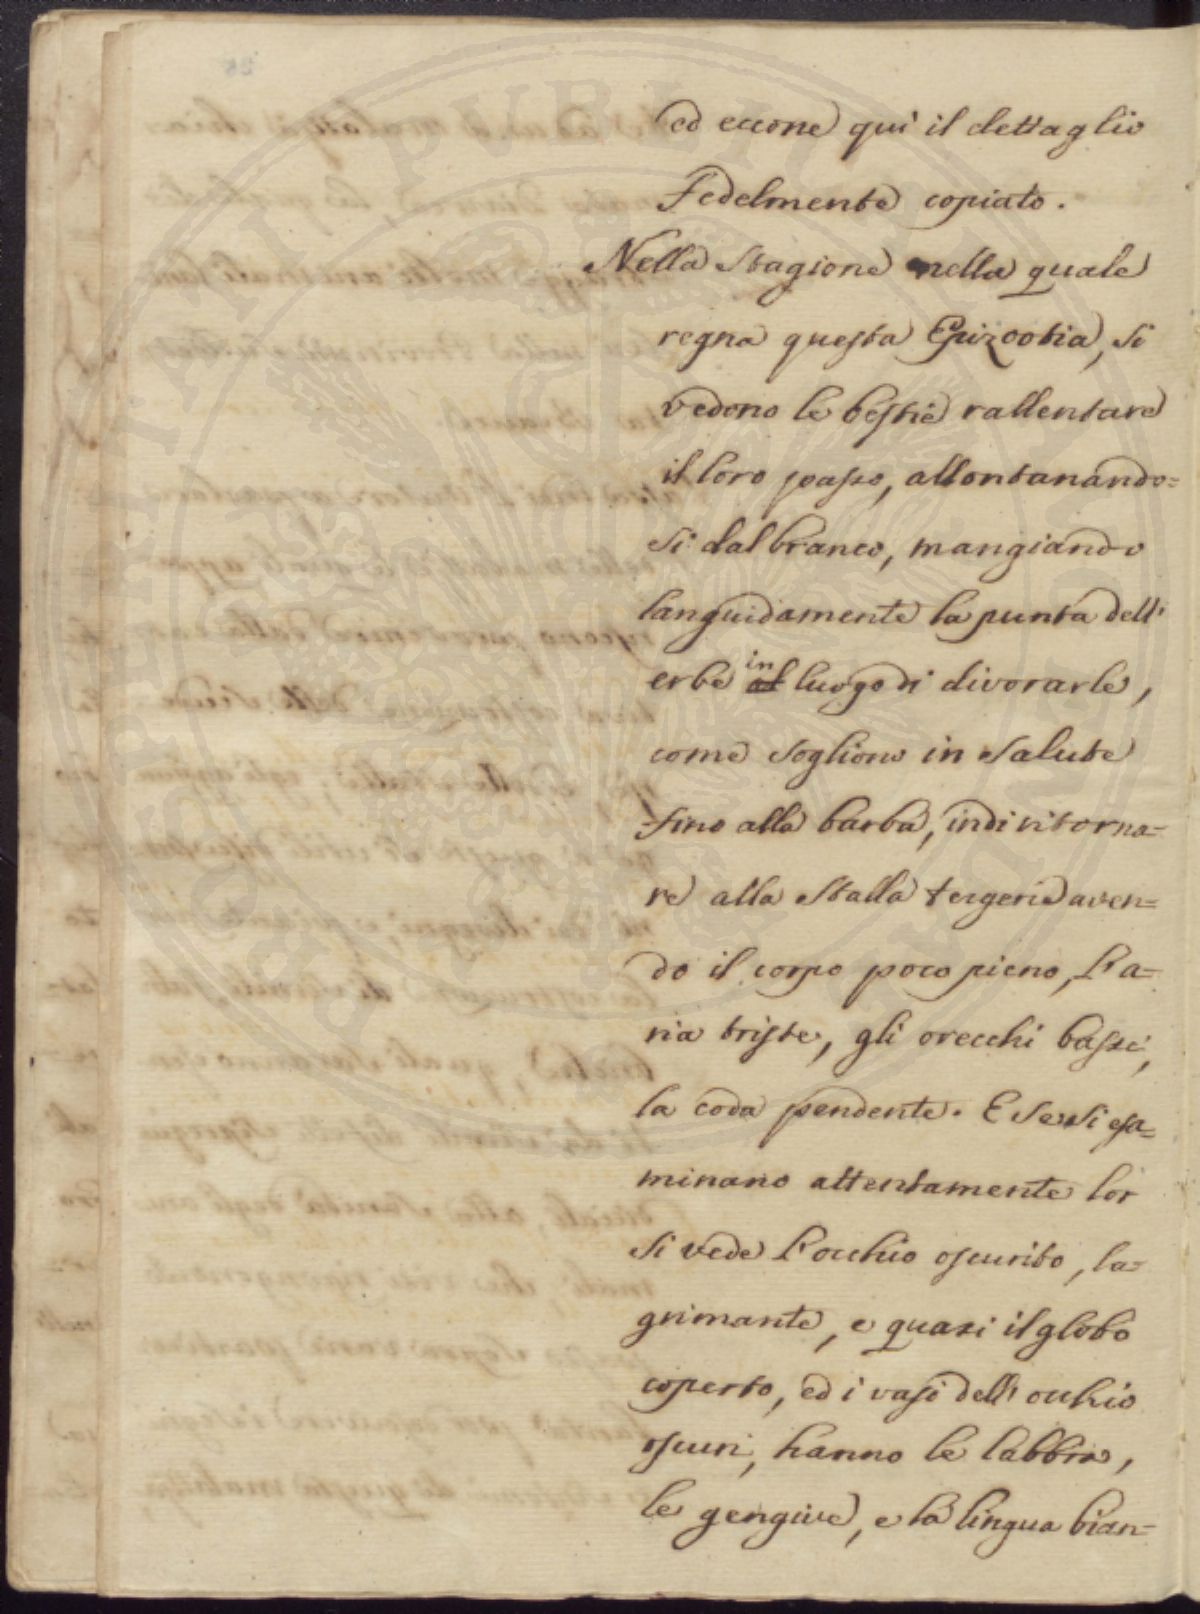 ed eccone qui il dettaglio
Fedelmente copiato.
Nella Stagione nella quale
regna questa Epizootia, si
vedono le bestie rallentare
il loro passo, allontanando=
si dal branco, mangiando
languidamente la punta dell'
erbe in al luogo di divorarle,
come sogliono in salute
fino alla barba, indi ritorna=
re alla Stalla aven=
do il corpo poco pieno, l'a=
ria triste, gli orecchi bassi,
la coda pendente. E se si esa=
minano attentamente lor
si vede l'occhio oscurito, la=
grimante, e quasi il globo
coperto, ed i vasi dell'occhio
oscuri, hanno le labbra,
le gengive, e la lingua bian=